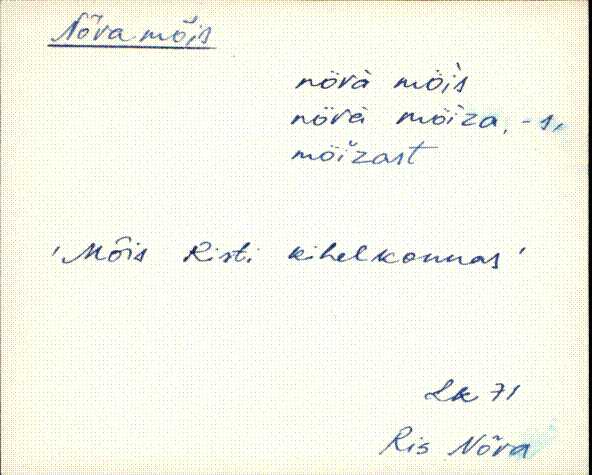 Nõva mõis
nõvà mõ̀is
nõvà mõìza, -s,
mõĭzast
'Mõis Risti kihelkonnas'
Lk 71
Ris Nõva